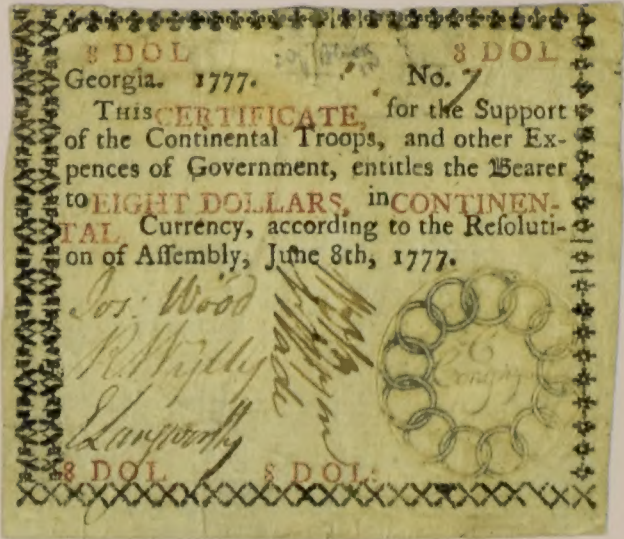 8 DOL 8 DOL
Georgia. 1777. No. 7
THIS CERTIFICATE, for the Support
of the Continental Troops, and other Ex-
pences of Government, entitles the Bearer
to EIGHT DOLLARS, in CONTINEN-
TAL Currency, according to the Reſoluti-
on of Aſſembly, June 8th, 1777.
Jos: Wood
R Wylly
E Langworthy
8 DOL 8 DOL: